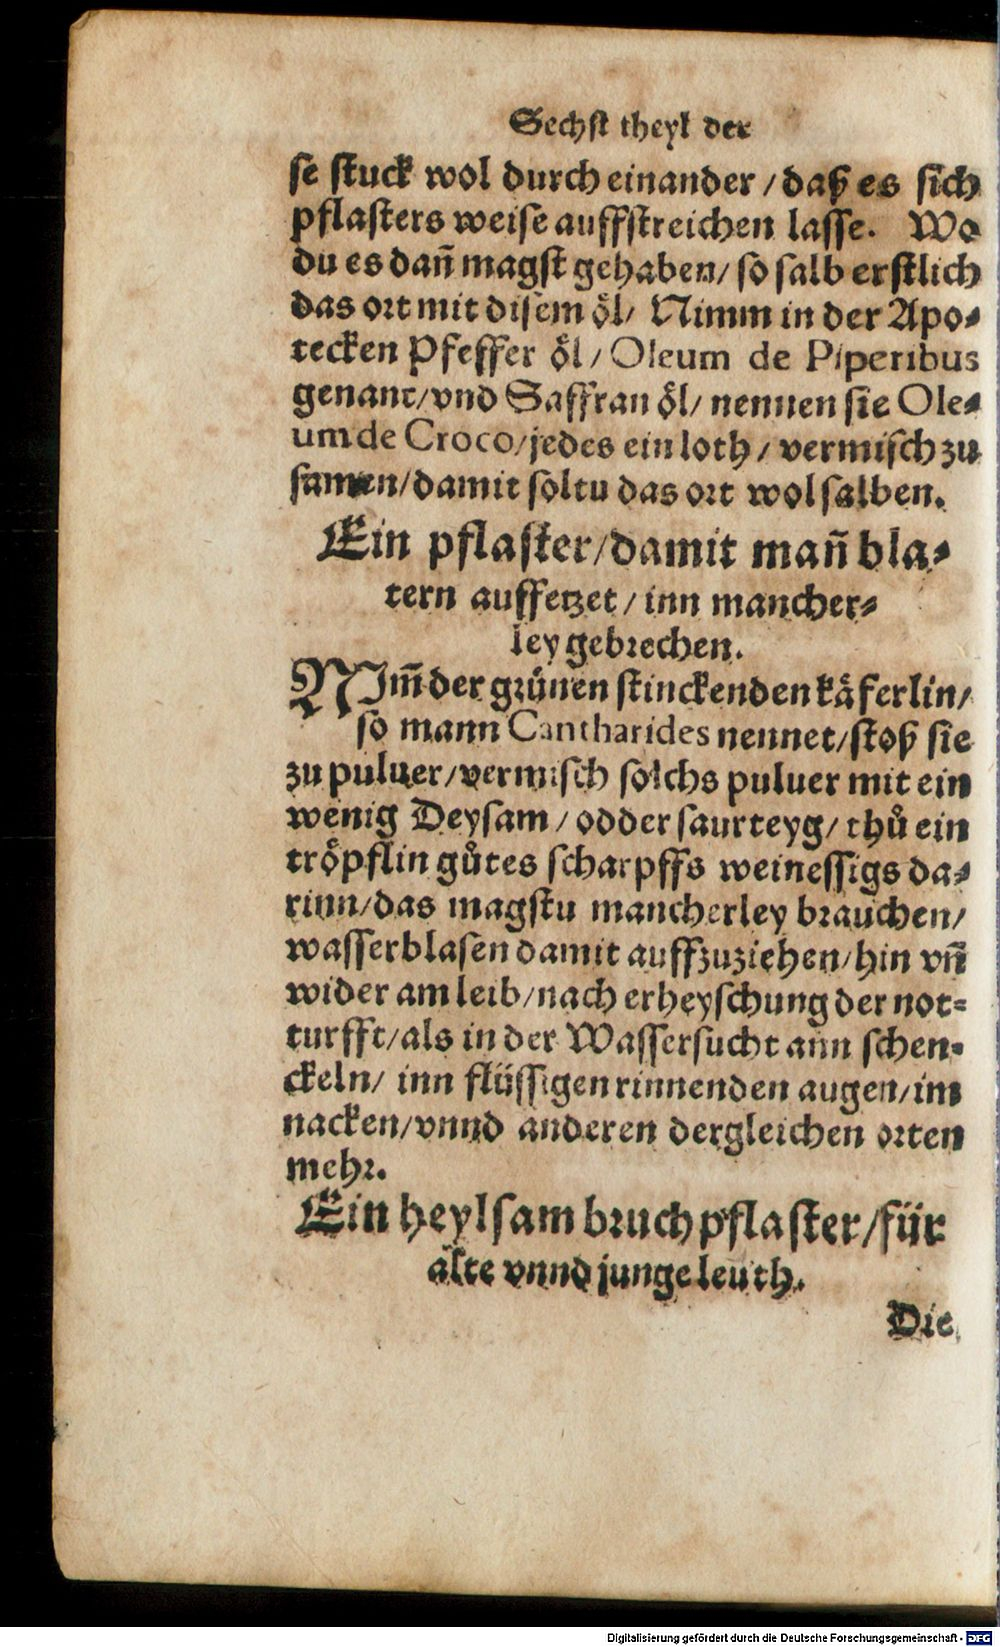 Sechst theyl der
se stuck wol durch einander / daß es sich
pflasters weise auffstreichen lasse. Wo
du es dañ magst gehaben / so salb erstlich
das ort mit disem öl / Nimm in der Apo⸗
tecken Pfeffer öl / Oleum de Piperibus
genant / vnd Saffran öl / nennen sie Ole⸗
um de Croco / jedes ein loth / vermisch zu
samen / damit soltu das ort wol salben.
Ein pflaster / damit mañ bla⸗
tern auffetzet / inn mancher⸗
ley gebrechen.
NIm̃ der grünen stinckenden käferlin /
so mann Cantharides nennet / stoß sie
zu puluer / vermisch solchs puluer mit ein
wenig Deysam / odder saurteyg / thů ein
tröpflin gůtes scharpffs weinessigs da⸗
rinn / das magstu mancherley brauchen /
wasserblasen damit auffzuziehen / hin vñ
wider am leib / nach erheyschung der not⸗
turfft / als in der Wassersucht ann schen⸗
ckeln / inn flüssigen rinnenden augen / im
nacken / vnnd anderen dergleichen orten
mehr.
Ein heylsam bruch pflaster / für
alte vnnd junge leuth.
Die
Digitalisierung gefördert durch die Deutsche Forschungsgemeinschaft - DFG